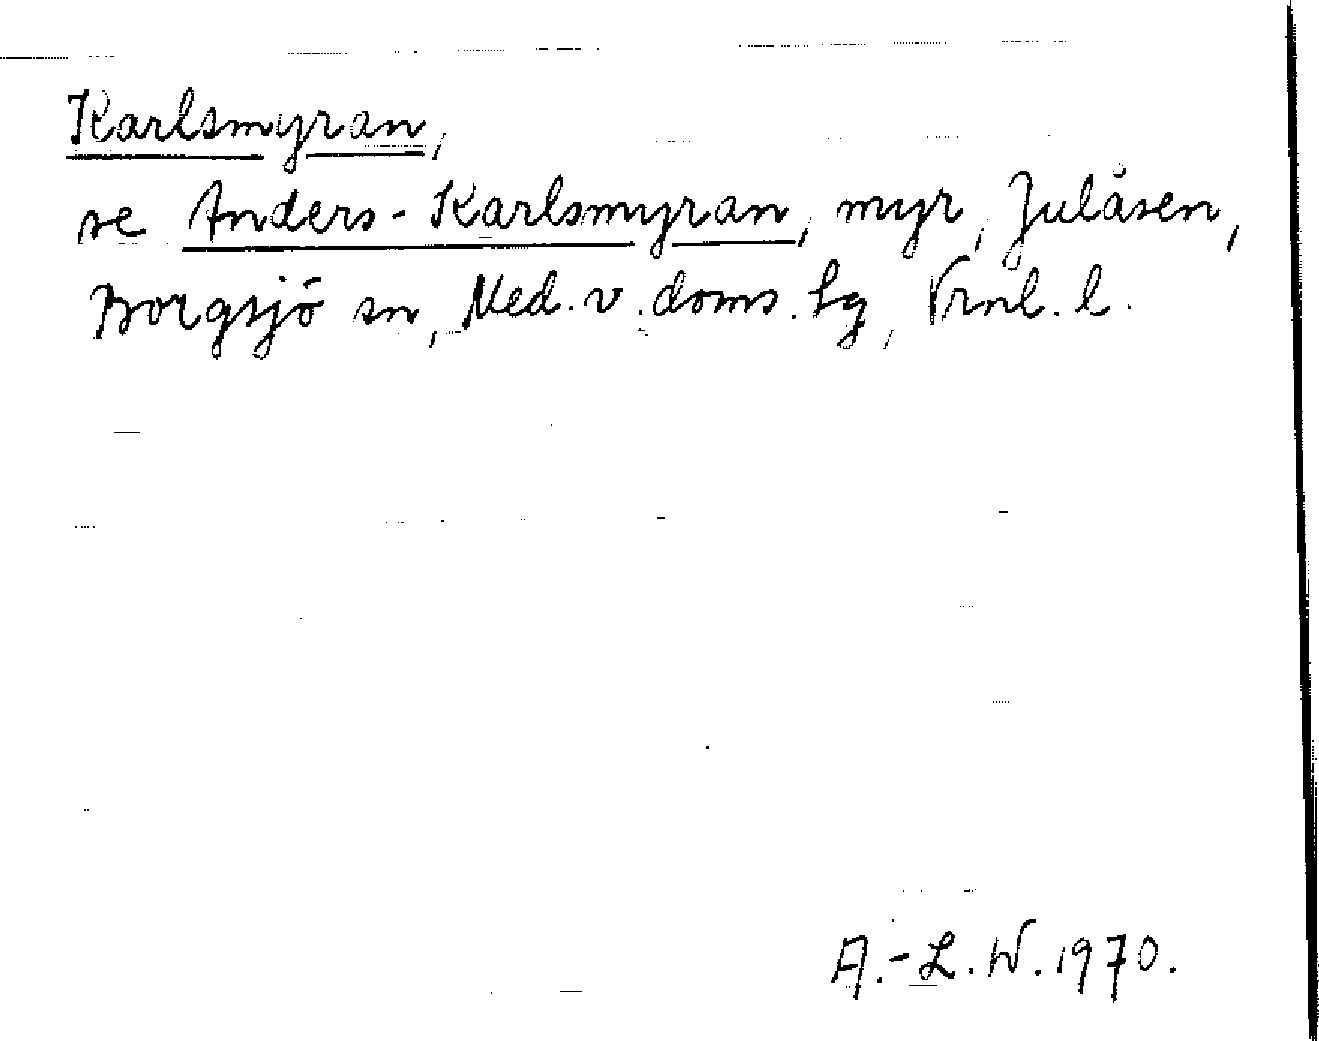 Karlsmyran,
se Anders-Karlsmyran, myr, Julåsen,
Borgsjö sn, Med. v. doms. lg, Vrnl. l.
A.-L. W. 1970.